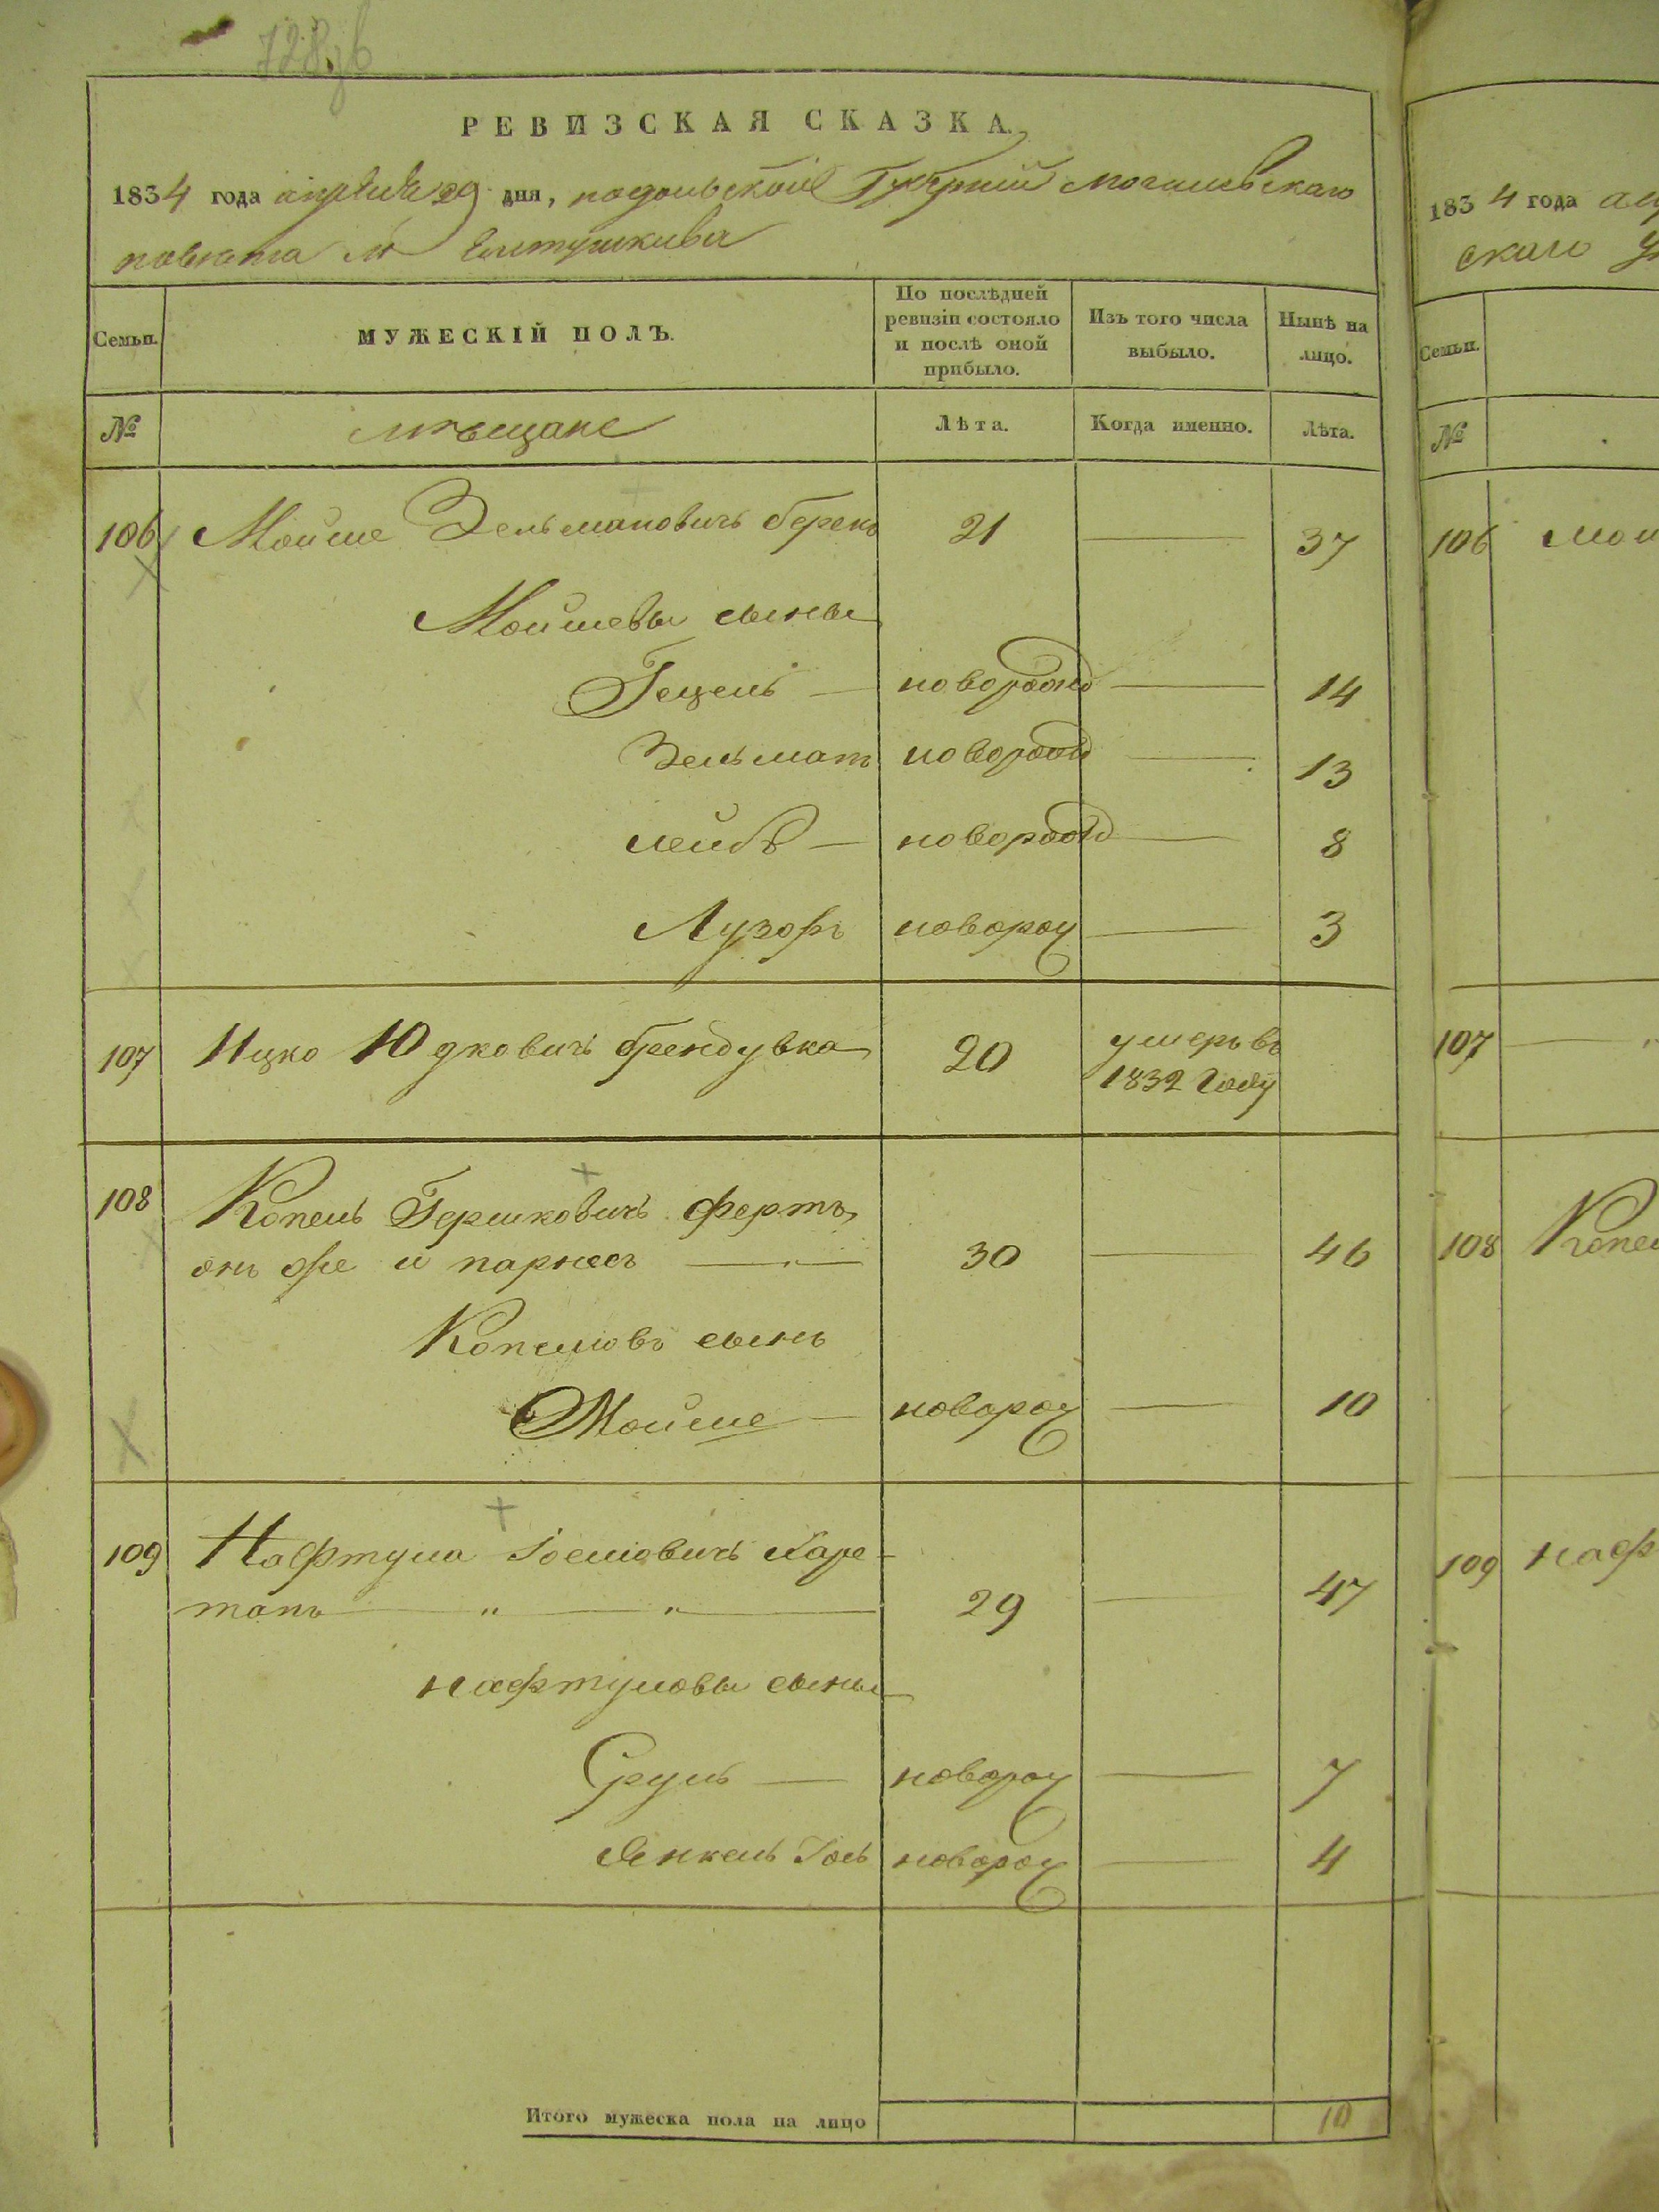 728
РЕВИЗСКАЯ СКАЗКА.
1834 года апреля 29 дня, подольской Губернии могилевскаго
повюта м Елтушкива
Семьи.
МУЖЕСКІЙ ПОЛЪ.
По послѣдней ревизіи состояло и послѣ оной прибыло.
Изъ того числа выбыло.
Нынѣ на лицо.
№
мѣщане
Лѣта.
Когда именно.
Лѣта.
106 Мойше Зельмановичъ беренъ 21 37
Мойшевы сыны
Гецель — новорожд 14
Зельман новорожд 13
лейбъ — новорожд 8
Лузоръ новорож 3
107 Ицко Юдковичъ брендувка 20 умеръ въ
1832 Году
108 Копель Гершковичъ фертъ,
онъ же и парнесъ 30 46
Копелювъ сынъ
Мойше — новорож 10
109 Нафтула Іоелювичъ Каре-
танъ " " 29 47
нафтуловы сыны
Сруль — новорож 7
Янкель Іось новорож 4
Итого мужеска пола на лицо 10
1834 года ап
скаго у
Семьи.
№
106 Мой
107 "
108 Копел
109 наф